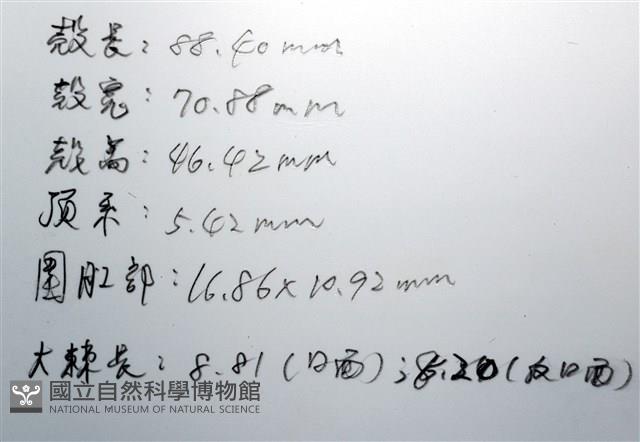 殼長：88.40mm
殼寬：70.88mm
殼高：46.42mm
頂系：5.42mm
圍肛部：16.86×10.92mm
大棘長：8.81（口面）；（反口面）
國立自然科學博物館
NATIONAL MUSEUM OF NATURAL SCIENCE